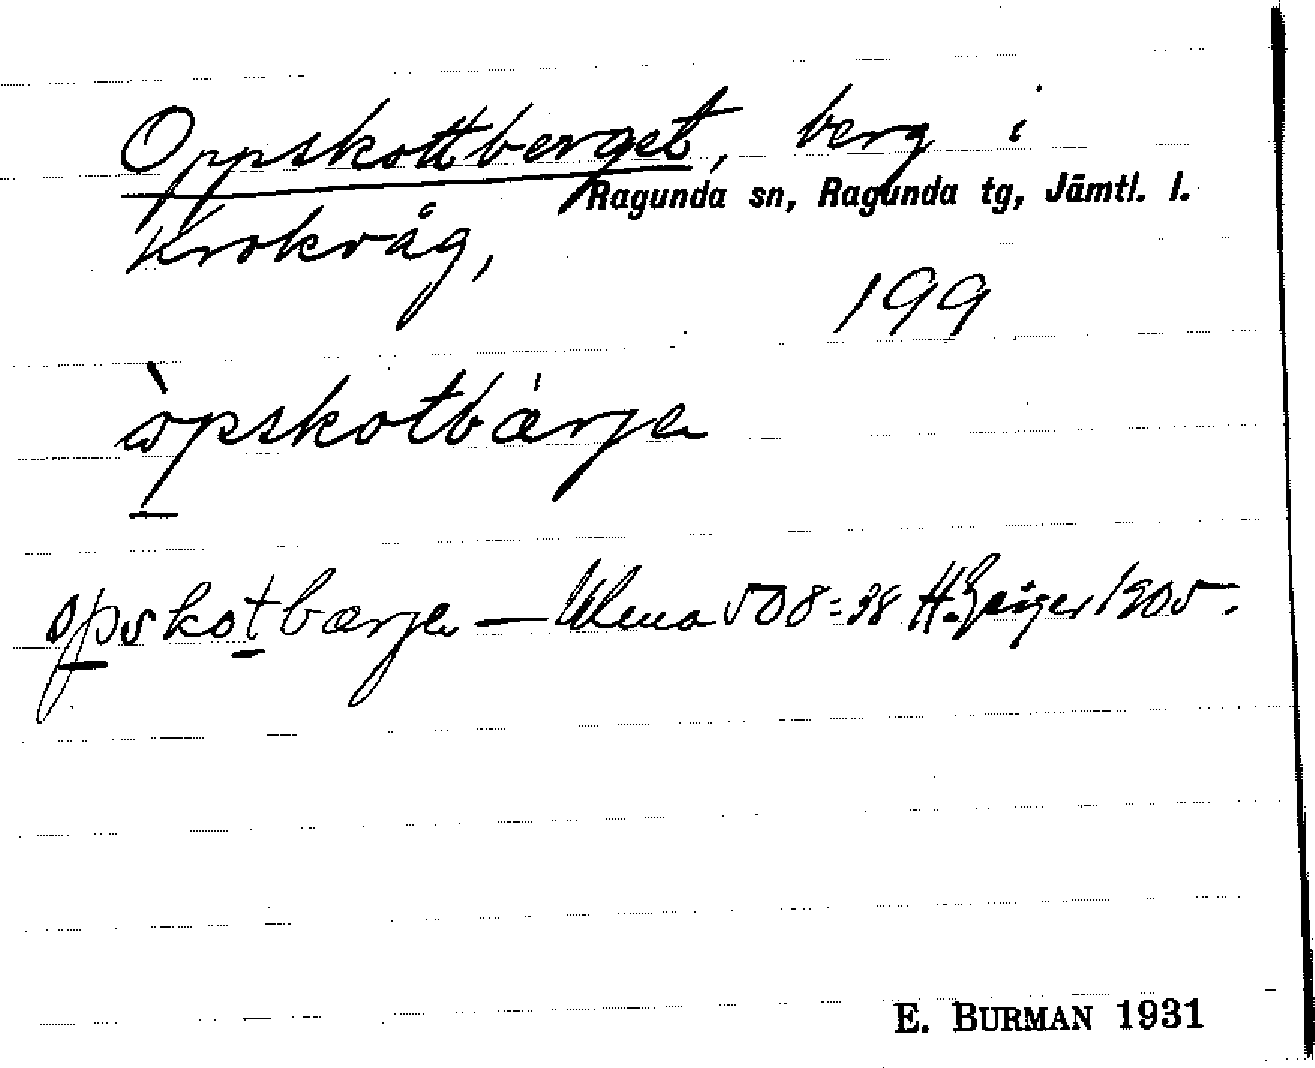 Oppskottberget, berg i
Ragunda sn, Ragunda tg, Jämtl. l.
Krokvåg,
199
òpskotbárje
opskotbærje — 508:38 H. Geijer 1905.
E. BURMAN 1931